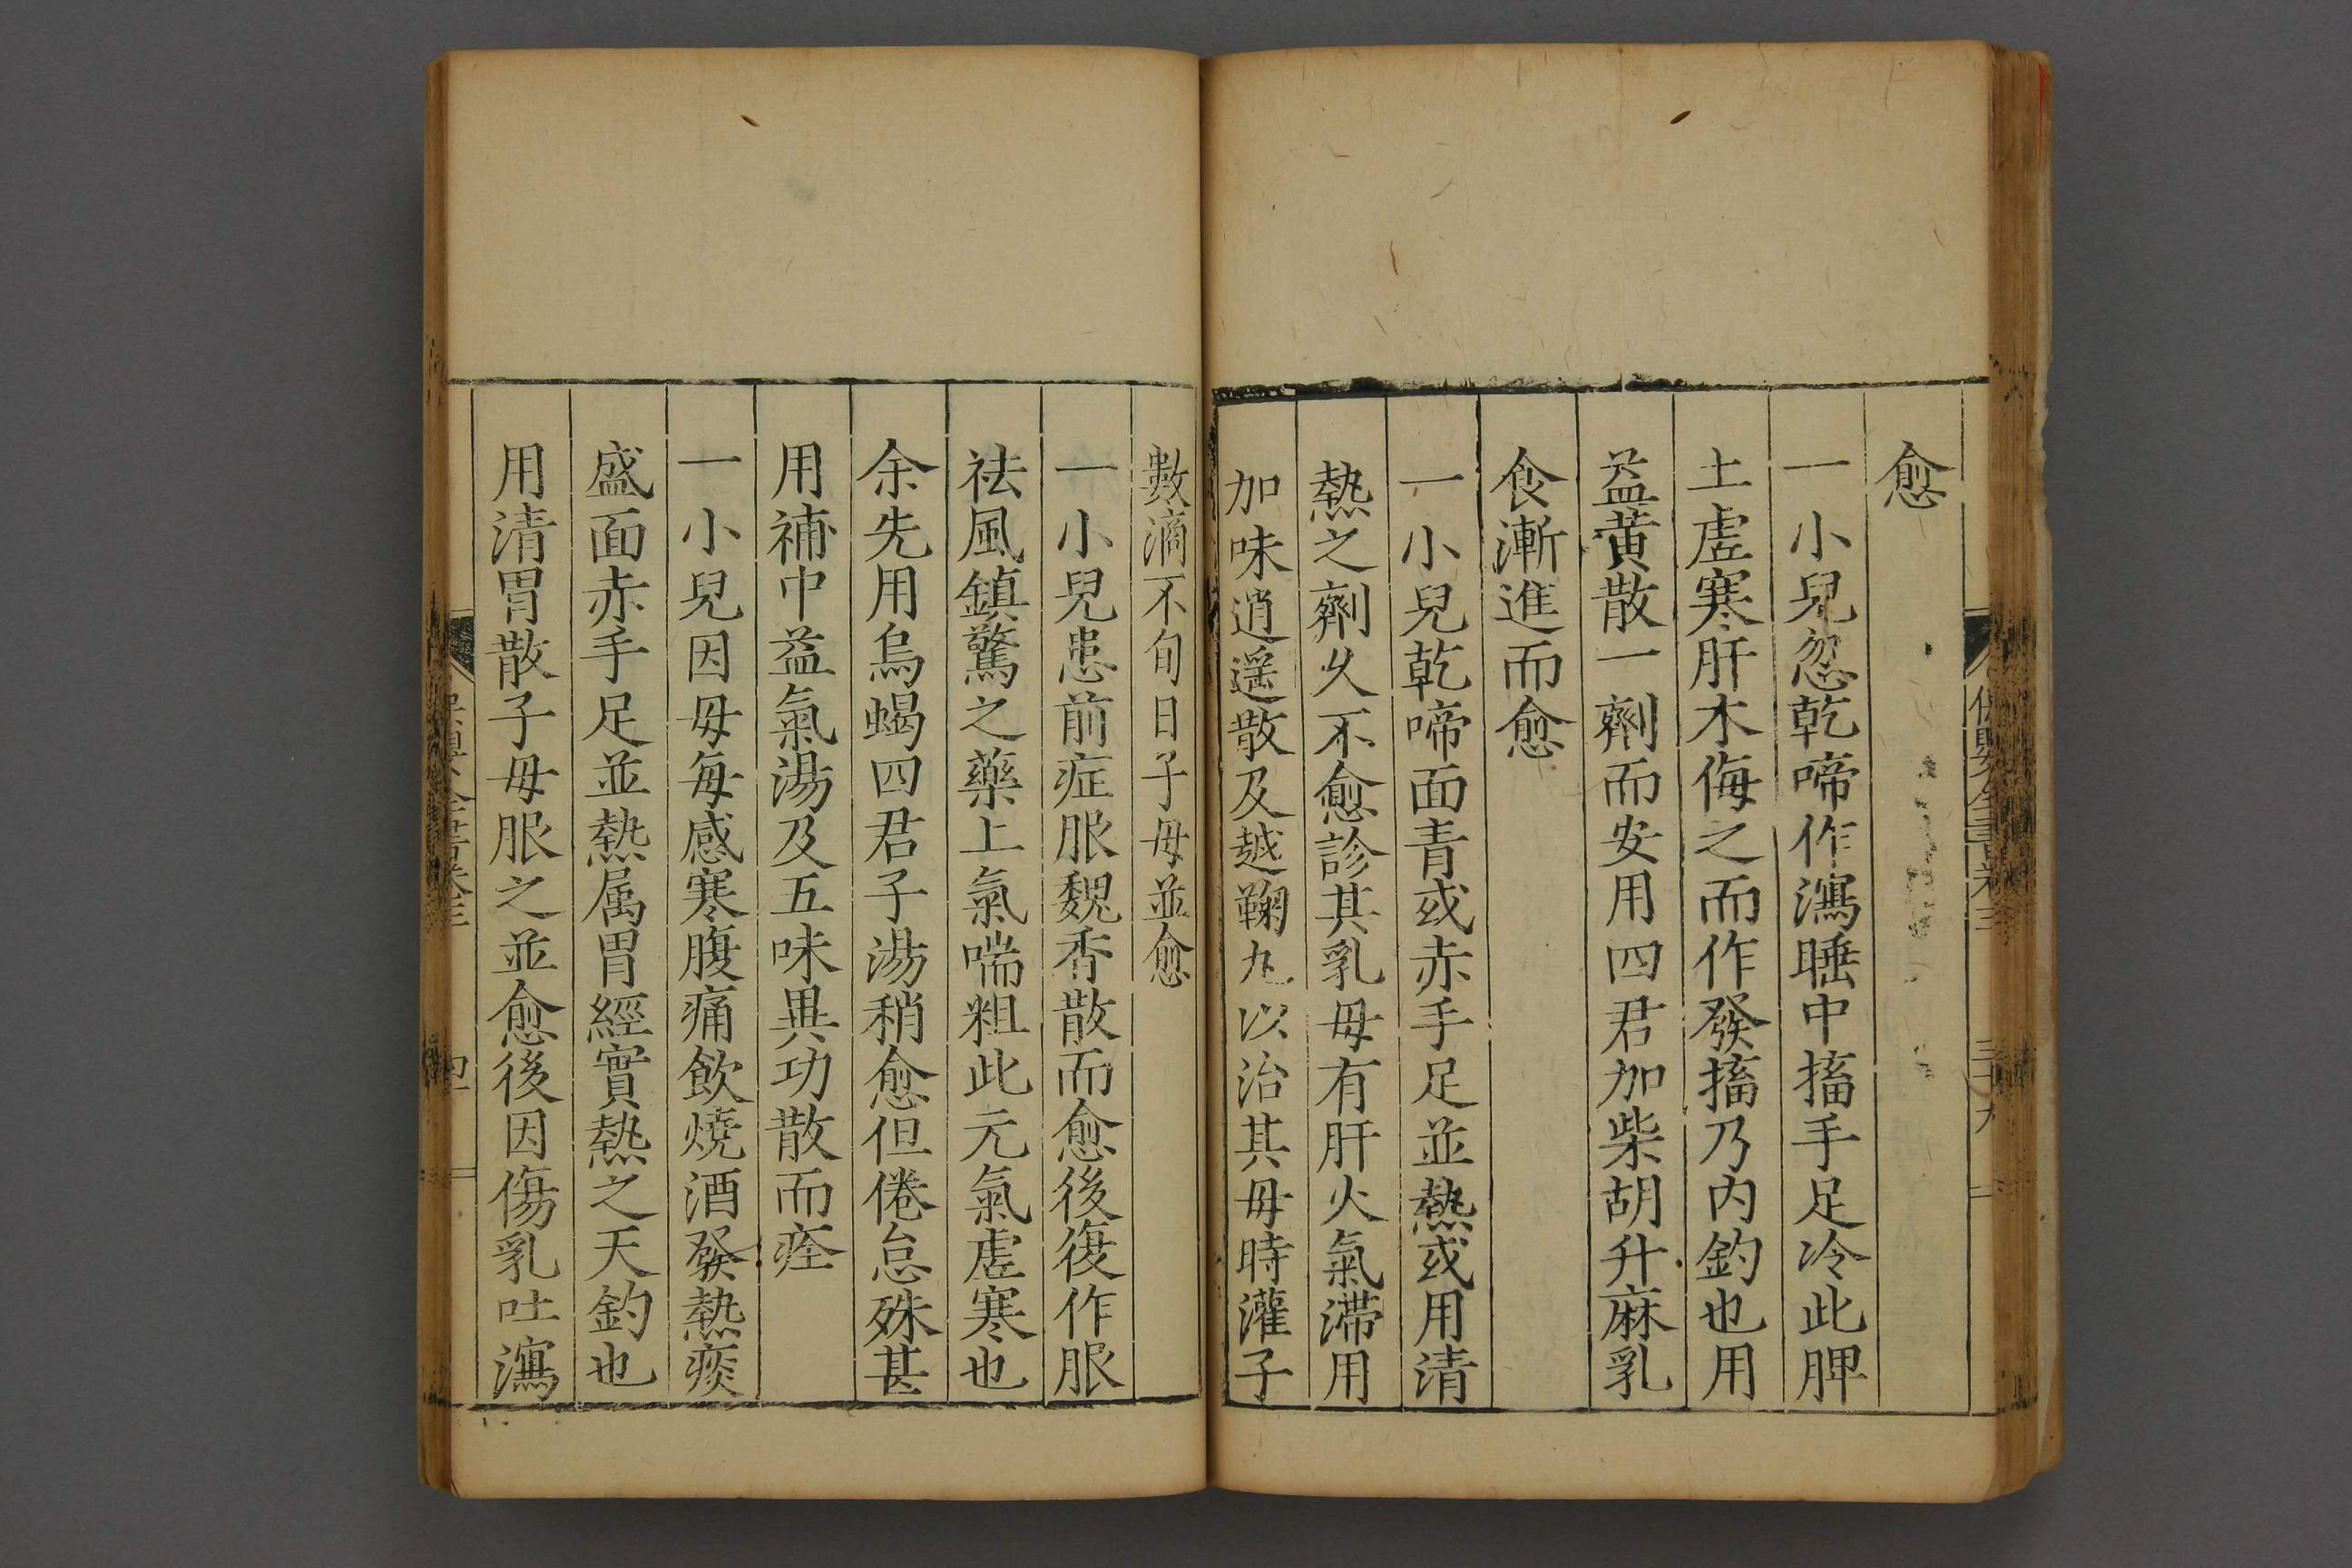 愈
一小兒忽乾啼作瀉睡中搐手足冷此脾
土虛寒肝木侮之而作發搐乃内釣也用
益黄散一劑而安用四君加柴胡升麻乳
食漸進而愈
一小兒乾啼面青或赤手足並熱或用清
熱之劑乆不愈診其乳母有肝火氣滯用
加味逍遥散及越鞠丸以治其母時灌子
數滴不旬日子母並愈
一小兒患前症服魏香散而愈後復作服
祛風鎮驚之藥上氣喘粗此元氣虛寒也
余先用烏蝎四君子湯稍愈但倦怠殊甚
用補中益氣湯及五味異功散而痊
一小兒因母每感寒腹痛飲燒酒發熱痰
盛面赤手足並熱属胃經實熱之天釣也
用清胃散子母服之並愈後因傷乳吐瀉